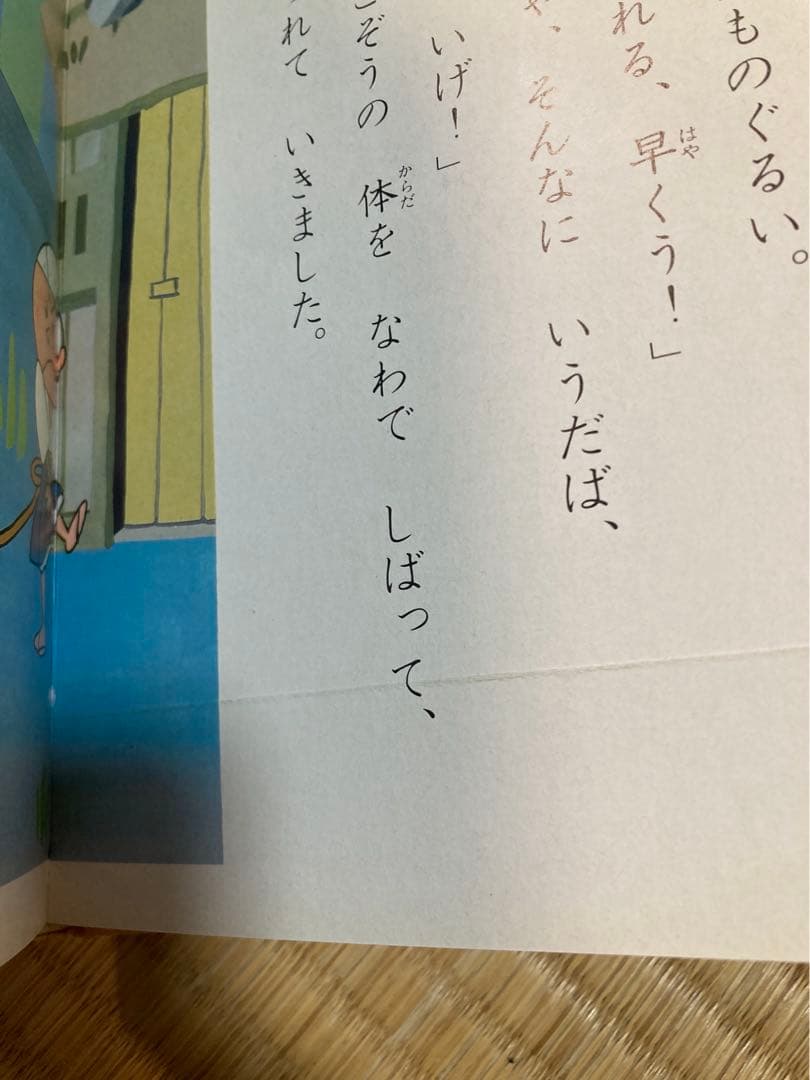 ものぐるい。
れる、早くう！」
や、そんなに いうだば、
いげ！」
ぞうの 体を なわで しばって、
れて いきました。
はや
からだ